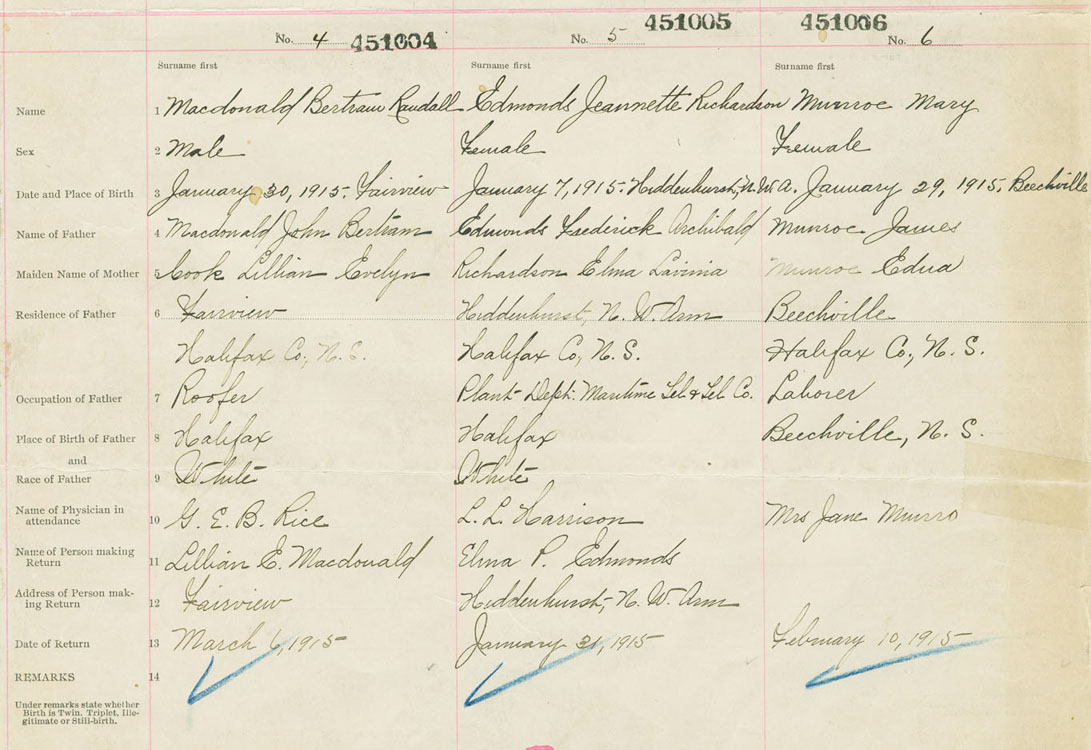 No. 4 451004 No. 5 451005 451006 No. 6
Surname first Surname first Surname first
Name 1 Macdonald Bertram Randall Edmonds Jeannette Richardson Munroe Mary
Sex 2 Male Female Female
Date and Place of Birth 3 January 30, 1915. Fairview January 7, 1915. Hiddenhurst, N. W. A. January 29, 1915. Beechville
Name of Father 4 Macdonald John Bertram Edmonds Frederick Archibald Munroe James
Maiden Name of Mother 5 Cook Lillian Evelyn Richardson Elma Lavinia Munroe Edna
Residence of Father 6 Fairview Hiddenhurst, N. W. Arm Beechville
Halifax Co., N. S. Halifax Co, N. S. Halifax Co., N. S.
Occupation of Father 7 Roofer Plant Dept. Maritime Tel & Tel Co. Laborer
Place of Birth of Father 8 Halifax Halifax Beechville, N. S.
and
Race of Father 9 White White
Name of Physician in
attendance 10 G. E. B. Rice L. L. Harrison Mrs Jane Munro
Name of Person making
Return 11 Lillian E. Macdonald Elma P. Edmonds
Address of Person mak-
ing Return 12 Fairview Hiddenhurst, N. W. Arm
Date of Return 13 March 6, 1915 January 31, 1915 February 10, 1915
REMARKS 14
Under remarks state whether
Birth is Twin. Triplet, Ille-
gitimate or Still-birth.